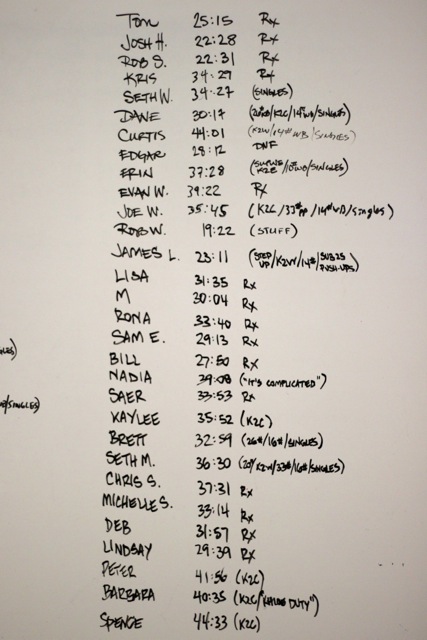 Tom 25:15 Rx
JOSH H. 22:28 Rx
ROB S. 22:31 Rx
KRIS 34:29 Rx
SETH W. 34:27 (SINGLES)
DANE 30:17 /K2C/14#WB/SINGLES)
CURTIS 44:01 (K2W/14# WB/SINGLES)
EDGAR 28:12 DNF
ERIN 37:28 /SINGLES)
EVAN W. 39:22 Rx
JOE W. 35:45 (K2C/33#PP/14#WB/SINGLES)
ROB W. 19:22 (STUFF)
JAMES L. 23:11 (STEP UP/K2W/14#/SUB 25 PUSH-UPS)
LISA 31:35 Rx
M 30:04 Rx
RONA 33:40 Rx
SAM E. 29:13 Rx
BILL 27:50 Rx
NADIA 39:08 ("IT'S COMPLICATED")
SAER 33:53 Rx
KAYLEE 35:52 (K2C)
BRETT 32:59 (26#/16#/SINGLES)
SETH M. 36:30 /K2W/33#/16#/SINGLES)
CHRIS S. 37:31 Rx
MICHELLE S. 33:14 Rx
DEB 31:57 Rx
LINDSAY 29:39 Rx
PETER 41:56 (K2C)
BARBARA 40:35 (K2C/ DUTY")
SPENCE 44:33 (K2C)
/SINGLES)